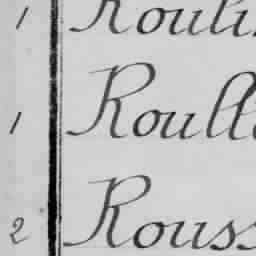 1 Rouli
1 Roull
2 Rouss